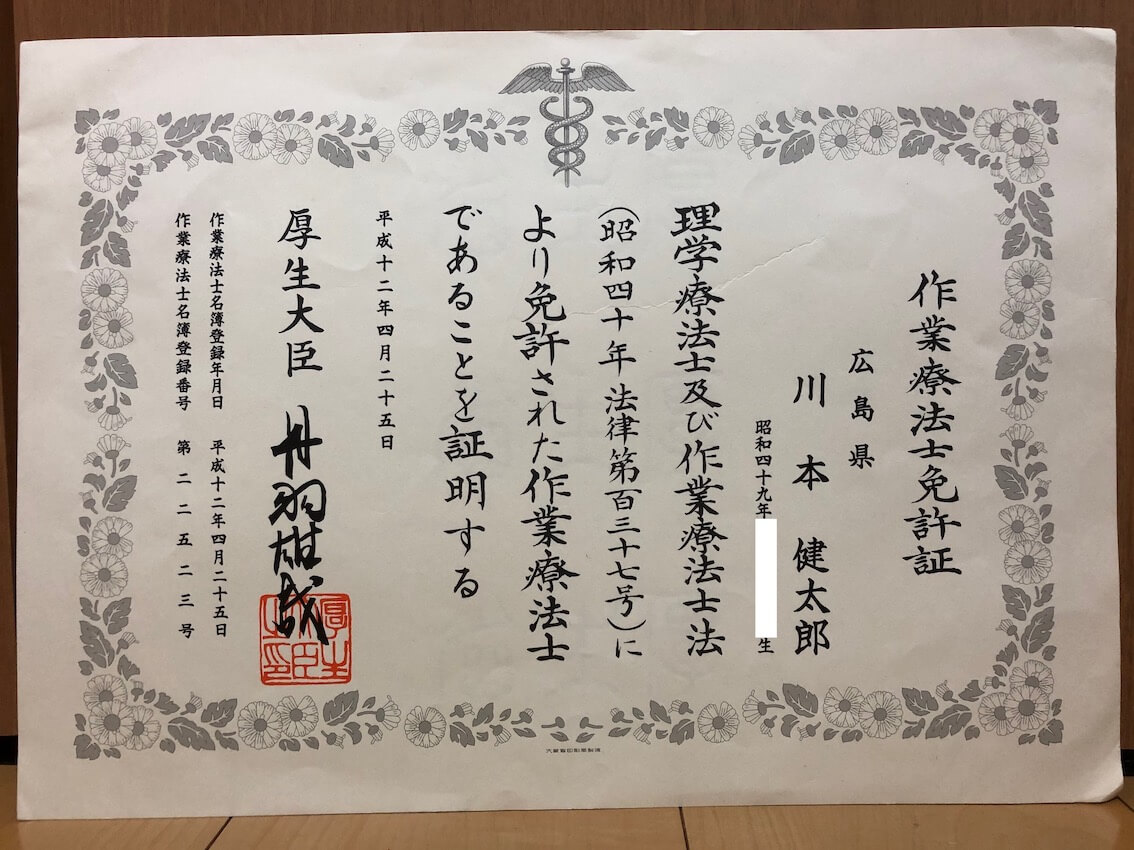 作業療法士免許証
広島県
川本健太郎
昭和四十九年
生
理学療法士及び作業療法士法
(昭和四十年法律第百三十七号)に
より免許された作業療法士
であることを証明する
平成十二年四月二十五日
厚生大臣 丹羽雄哉
厚生大臣之印
作業療法士名簿登録年月日 平成十二年四月二十五日
作業療法士名簿登録番号 第二二五二三号
大蔵省印刷局製造